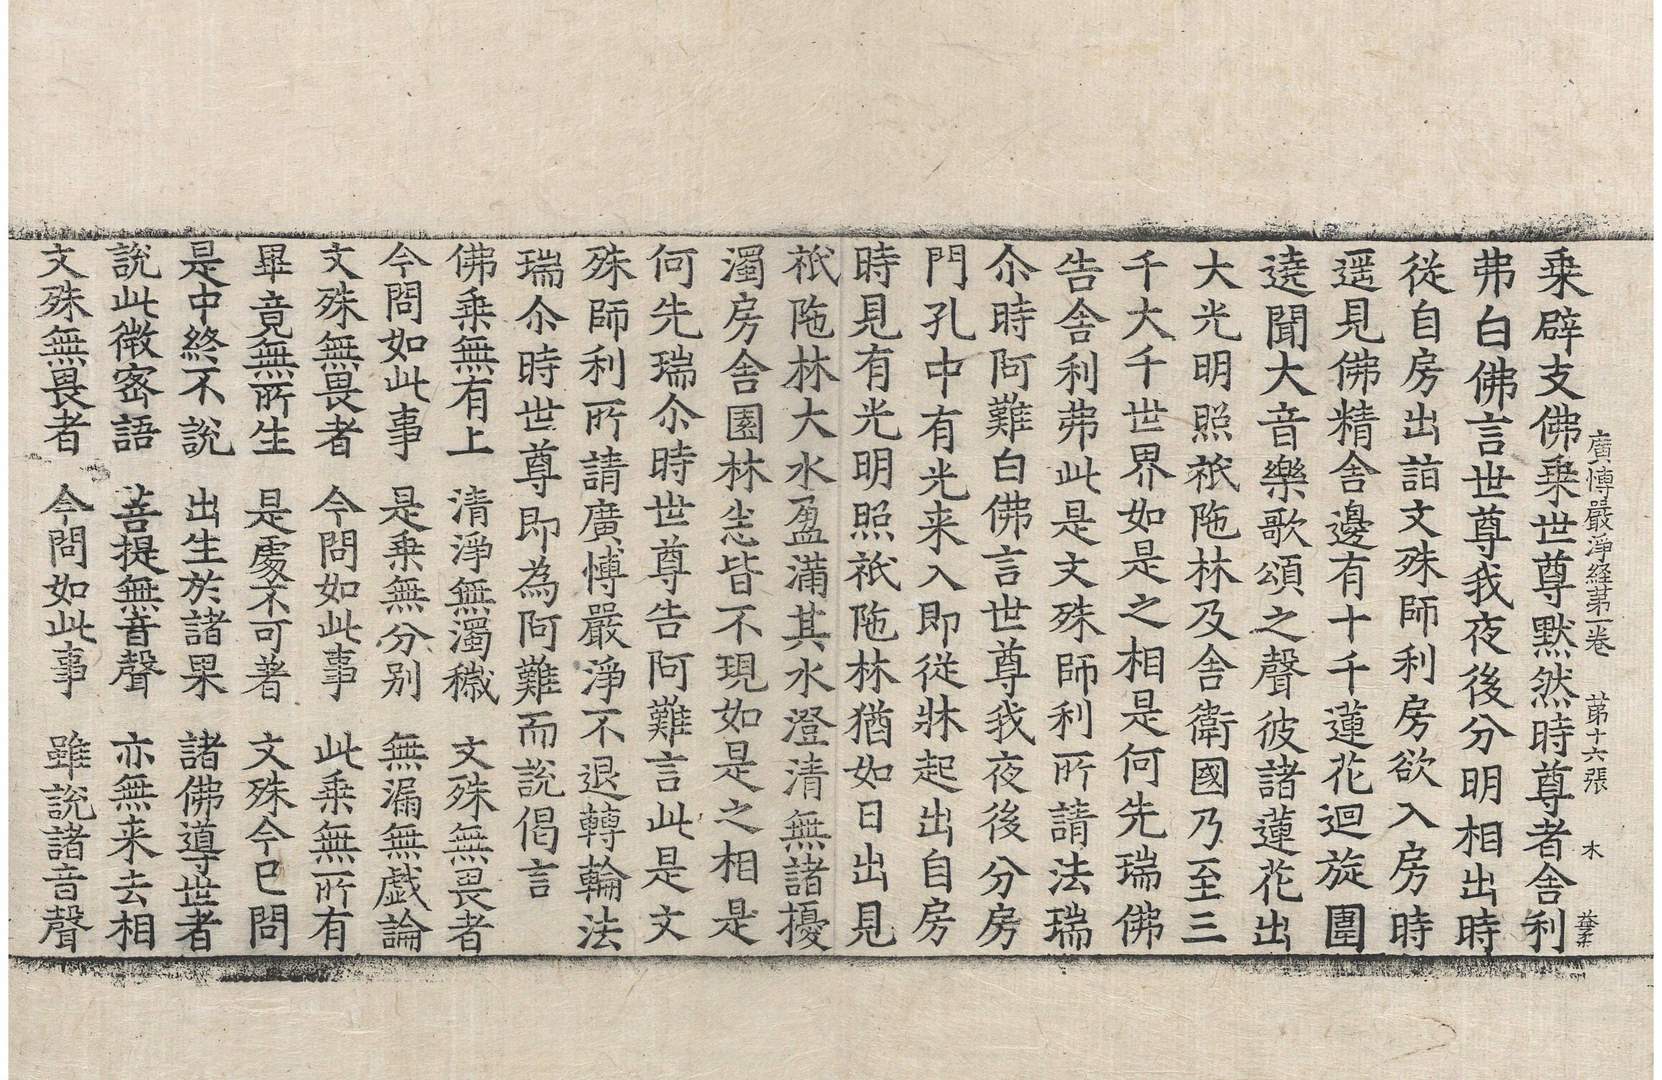 廣博嚴淨経苐一卷 苐十六張 木 益柔
乗辟支佛乗世尊黙然時尊者舎利
弗白佛言世尊我夜後分明相出時
従自房出詣文殊師利房欲入房時
遥見佛精舎邊有十千蓮花迴旋圍
遶聞大音樂歌頌之聲彼諸蓮花出
大光明照祇陁林及舎衛國乃至三
千大千世界如是之相是何先瑞佛
告舎利弗此是文殊師利所請法瑞
尒時阿難白佛言世尊我夜後分房
門孔中有光来入即従牀起出自房
時見有光明照祇陁林猶如日出見
祇陁林大水盈滿其水澄清無諸擾
濁房舎園林悉皆不現如是之相是
何先瑞尒時世尊告阿難言此是文
殊師利所請廣愽嚴淨不退轉輪法
瑞尒時世尊即為阿難而說偈言
佛乗無有上 清淨無濁穢 文殊無畏者
今問如此事 是乗無分别 無漏無戯論
文殊無畏者 今問如此事 此乗無所有
畢竟無所生 是處不可著 文殊今已問
是中終不說 出生於諸果 諸佛導世者
說此微宻語 菩提無音聲 亦無来去相
文殊無畏者 今問如此事 雖說諸音聲